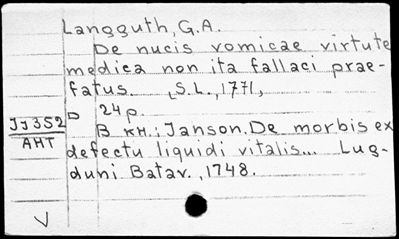 Langguth, G.A.
De nucis vomicae virtute
medica non ita fallaci prae-
fatus. S.L., 1771,
24 p.
JJ352
АНТ
В кн.: Janson. De morbis ex
defectu liquidi vitalis... Lug-
duni Batav., 1748.
V